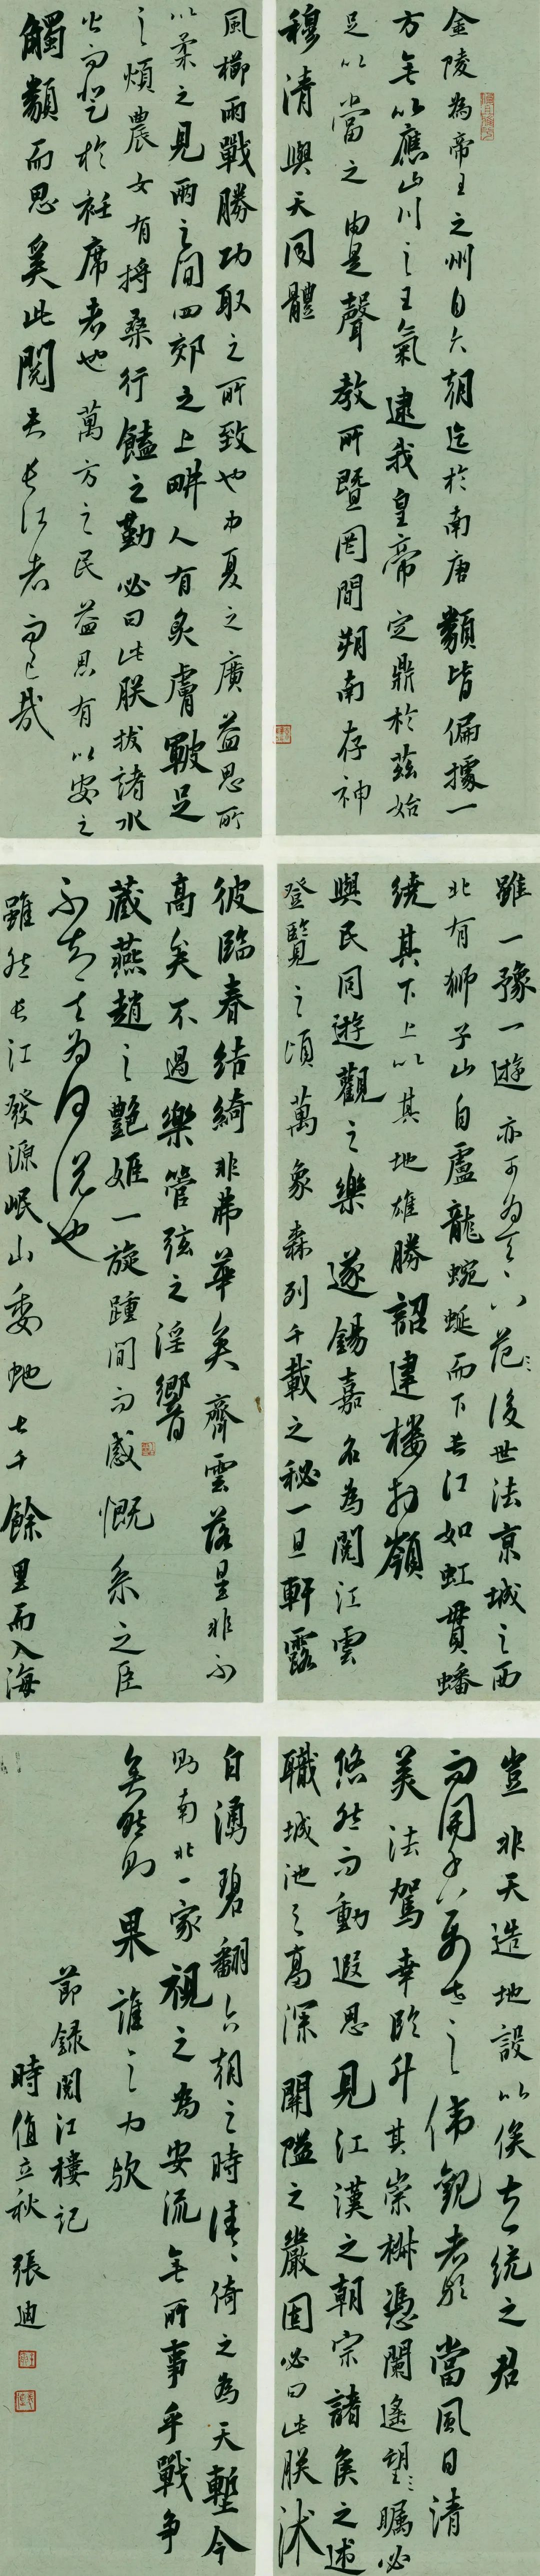 金陵為帝王之州自六朝迄於南唐類皆偏據一
方無以應山川之王氣逮我皇帝定鼎於茲始
足以當之由是聲教所暨罔間朔南存神
穆清與天同體
雖一豫一遊亦可為天下范後世法京城之西
北有獅子山自盧龍蜿蜒而下長江如虹貫蟠
繞其下上以其地雄勝詔建樓於嶺
與民同遊觀之樂遂錫嘉名為閱江雲
登覽之頃萬象森列千載之秘一旦軒露
豈非天造地設以俟大一統之君
而開千萬世之偉觀者歟當風日清
美法駕幸臨升其崇椒憑闌遙望矚必
悠然而動遐思見江漢之朝宗諸侯之述
職城池之高深關隘之嚴固必曰此朕沐
風櫛雨戰勝功取之所致也中夏之廣益思所
以柔之見兩之間四郊之上畊人有炙膚皸足
之煩農女有捋桑行饁之勤必曰此朕拔諸水
火而登於衽席者也萬方之民益思有以安之
觸類而思奚此閱夫長江者而已哉
彼臨春結綺非弗華矣齊雲落星非不
高矣不過樂管弦之淫響
藏燕趙之艷姬一旋踵間而感慨系之臣
不知其為何說也
雖然長江發源岷山委蛇七千餘里而入海
白湧碧翻六朝之時往往倚之為天塹今
則南北一家視之為安流無所事乎戰爭
矣然則果誰之力歟
節錄閱江樓記
時值立秋 張迪